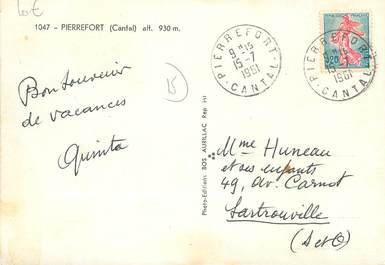 1047 - PIERREFORT (Cantal) alt. 930 m.
Bon souvenir
de vacances
Quinta
15
Photo-Editions BOS AURILLAC Rep int
PIERREFORT
9 H 15
15-7
1961
CANTAL
PIERREFORT
15-7
1961
CANTAL
0,20
Mme Huneau
et ses enfants
49, av. Carnot
Sartrouville
(S et O)